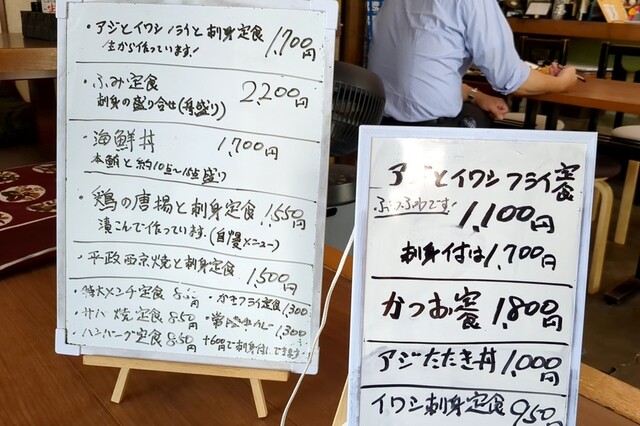 ・アジとイワシフライと刺身定食 1,700円
生から作っています!
・ふみ定食 2,200円
刺身の盛り合せ(舟盛り)
・海鮮丼 1,700円
本鮪と約10点〜15点盛り
・鶏の唐揚と刺身定食 1,550円
漬こんで作っています。(自慢メニュー)
・平政西京焼と刺身定食 1,500円
・特大メンチ定食 850円 ・かきフライ定食 1,300
・サバ焼定食 850円 ・常陸牛カレー 1,300
・ハンバーグ定食 850円 +600円で刺身付にできます
アジとイワシフライ定食
ふわふわです! 1,100円
刺身付は1,700円
かつお定食 1,800円
アジたたき丼 1,000円
イワシ刺身定食 950円